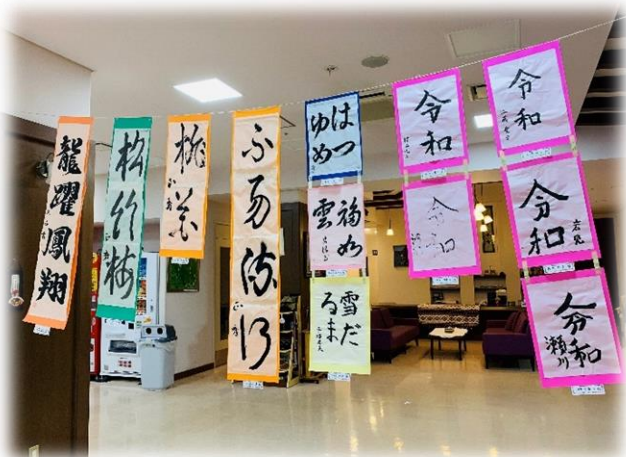 龍躍鳳翔
松竹梅
不易流行
はつ
ゆめ
福如
雲
雪だ
るま
令和
令和
令和
令和
令和
瀬川